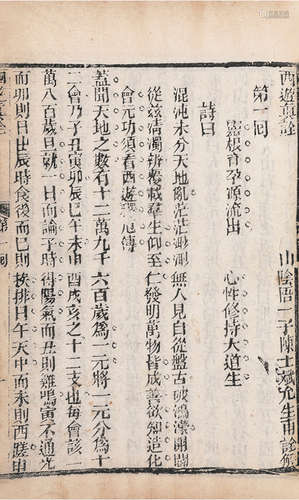 西遊真詮　山陰悟一子陳士斌允生甫詮解
第一回
靈根育孕源流出　心性修持大道生
詩曰
混沌未分天地亂茫茫渺渺無人見自從盤古破鴻濛開闢
從茲清濁辨覆載羣生仰至仁發明萬物皆成善欲知造化
會元功須看西遊釋厄傳
蓋聞天地之數有十二萬九千六百歲為一元將一元分為十
二會乃子丑寅卯辰巳午未申酉戌亥之十二支也每會該一
萬八百歲且就一日而論子時得陽氣而丑則雞鳴寅不通光
而卯則日出辰時食後而巳則挨排日午天中而未則西蹉申
第一回